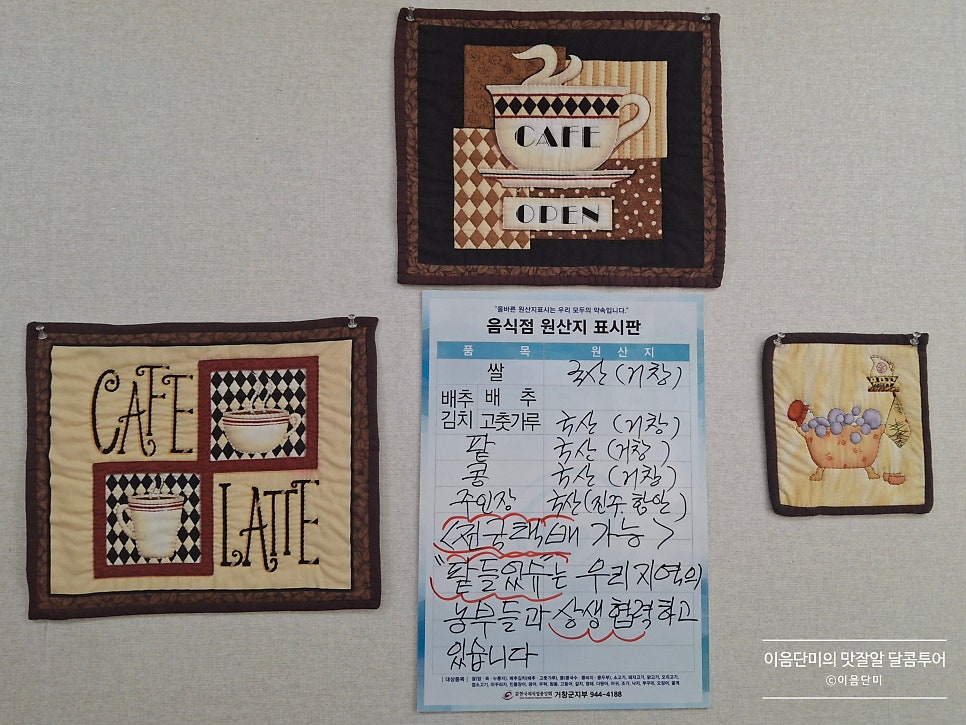 CAFE
OPEN
CAFE
LATTE
"올바른 원산지표시는 우리 모두의 약속입니다."
음식점 원산지 표시판
품 목 원 산 지
쌀 국산 (거창)
배추 배 추
김치 고춧가루 국산 (거창)
팥 국산 (거창)
콩 국산 (거창)
주인장 국산(진주. 함안)
<전국택배 가능>
"팥들었슈"는 우리지역의
농부들과 상생협력하고
있습니다
대상품목
거창군지부 944-4188
이음단미의 맛잘알 달콤투어
©이음단미